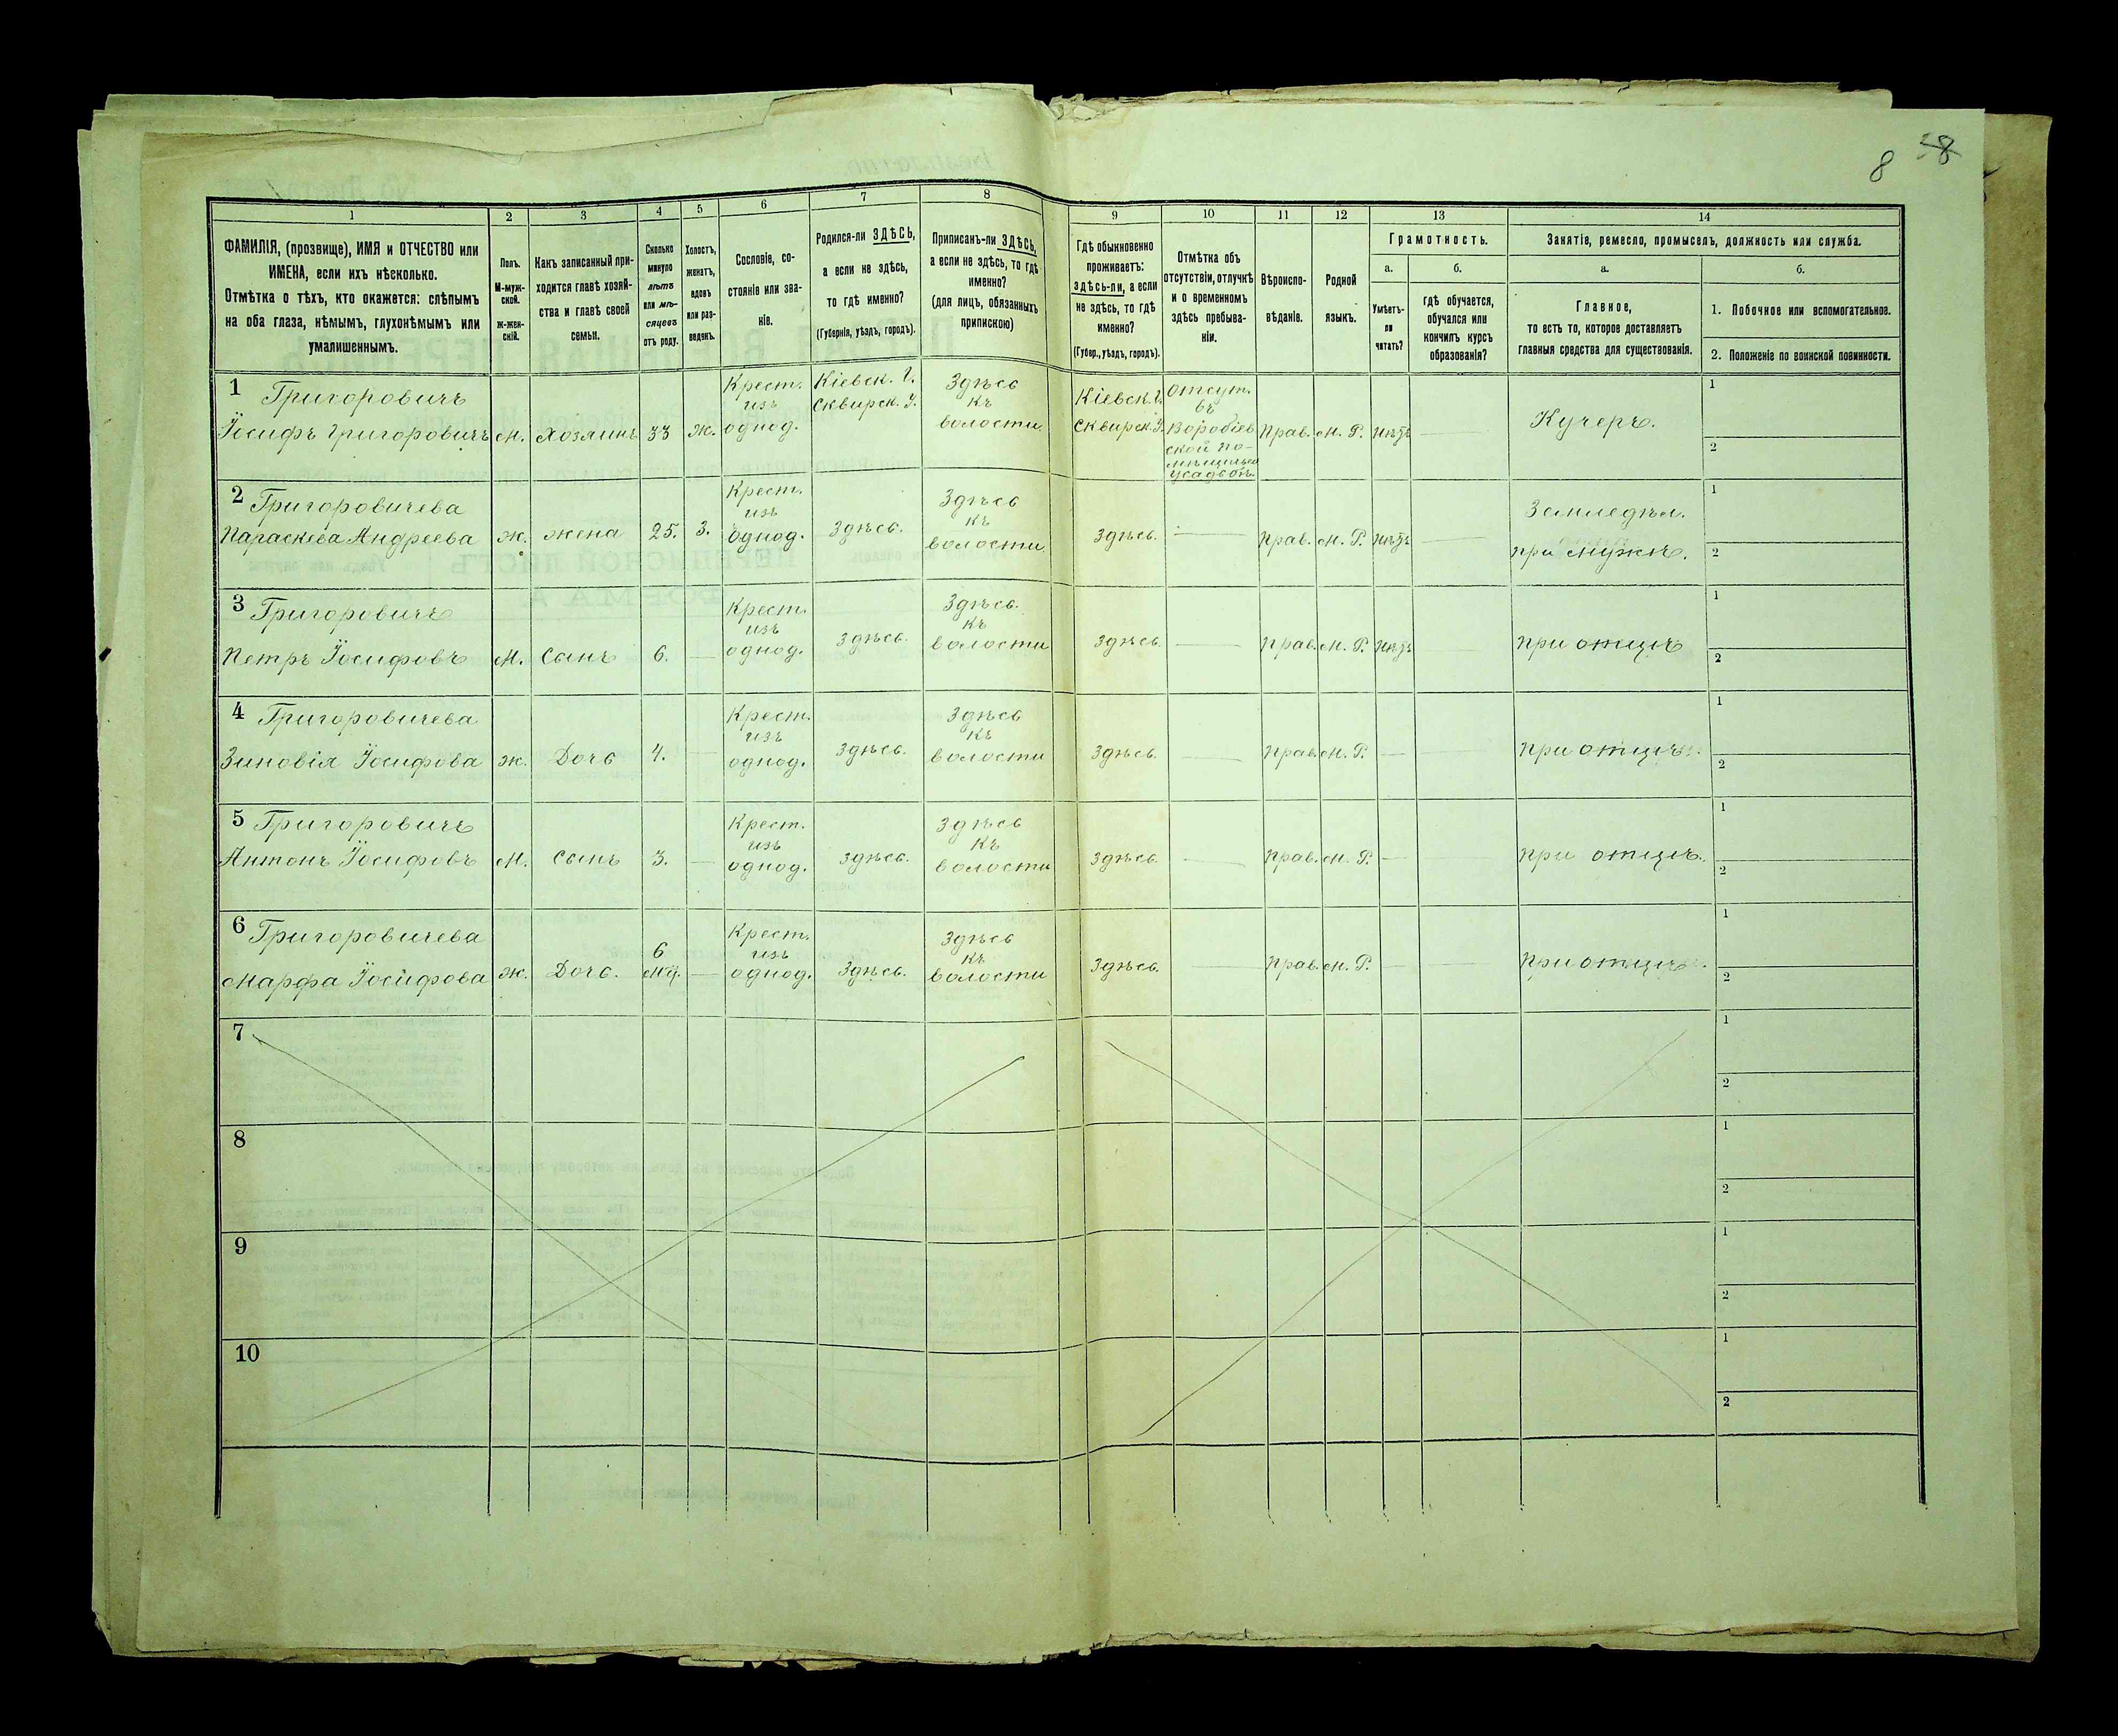 8 58
1 2 3 4 5 6 7 8 9 10 11 12 13 14
ФАМИЛІЯ, (прозвище), ИМЯ и ОТЧЕСТВО или
ИМЕНА, если ихъ нѣсколько.
Отмѣтка о тѣхъ, кто окажется: слѣпымъ
на оба глаза, нѣмымъ, глухонѣмымъ или
умалишеннымъ.
Полъ.
М-муж-
ской.
ж-жен-
скій.
Какъ записанный при-
ходится главѣ хозяй-
ства и главѣ своей
семьи.
Сколько
минуло
лѣтъ
или мѣ-
сяцевъ
отъ роду.
Холостъ,
женатъ,
вдовъ
или раз-
веденъ.
Сословіе, со-
стояніе или зва-
ніе.
Родился-ли ЗДѢСЬ,
а если не здѣсь,
то гдѣ именно?
(Губернія, уѣздъ, городъ).
Приписанъ-ли ЗДѢСЬ,
а если не здѣсь, то гдѣ
именно?
(для лицъ, обязанныхъ
припискою)
Гдѣ обыкновенно
проживаетъ:
здѣсь-ли, а если
не здѣсь, то гдѣ
именно?
(Губер., уѣздъ, городъ).
Отмѣтка объ
отсутствіи, отлучкѣ
и о временномъ
здѣсь пребыва-
ніи.
Вѣроиспо-
вѣданіе.
Родной
языкъ.
Грамотность.
а.
Умѣетъ-
ли
читать?
б.
гдѣ обучается,
обучался или
кончилъ курсъ
образованія?
Занятіе, ремесло, промыселъ, должность или служба.
а.
Главное,
то есть то, которое доставляетъ
главныя средства для существованія.
б.
1. Побочное или вспомогательное.
2. Положеніе по воинской повинности.
1 Григоровичъ
Іосифъ Григоровичъ
м.
хозяинъ
33
ж.
Крест.
изъ
однод.
Кіевск. Г.
Сквирск. У.
Здѣсь
къ
волости
Кіевск. Г.
Сквирск. У.
Отсут.
въ
Воробіев
ской по-
мѣщичьей
усадьбѣ
Прав.
М. Р.
нѣтъ
Кучеръ.
1
2
2 Григоровичева
Параскева Андреева
ж.
жена
25.
З.
Крест.
изъ
однод.
Здѣсь.
Здѣсь
къ
волости
Здѣсь.
Прав.
М. Р.
нѣтъ
Земледѣл.
при мужѣ.
1
2
3 Григоровичъ
Петръ Іосифовъ
М.
Сынъ
6.
Крест.
изъ
однод.
здѣсь.
Здѣсь.
къ
волости
здѣсь
Прав.
М. Р.
нѣтъ
при отцѣ
1
2
4 Григоровичева
Зиновія Іосифова
ж.
Дочь
4.
Крест.
изъ
однод.
Здѣсь.
Здѣсь
къ
волости
Здѣсь.
Прав.
М. Р.
при отцѣ.
1
2
5 Григоровичъ
Антонъ Іосифовъ
М.
Сынъ
3.
Крест.
изъ
однод.
Здѣсь.
Здѣсь
къ
волости
Здѣсь.
Прав.
М. Р.
при отцѣ.
1
2
6 Григоровичева
Марфа Іосифова
ж.
Дочь.
6
Мц.
Крест.
изъ
однод.
Здѣсь.
Здѣсь
къ
волости
Здѣсь.
Прав.
М. Р.
при отцѣ
1
2
7
1
2
8
1
2
9
1
2
10
1
2